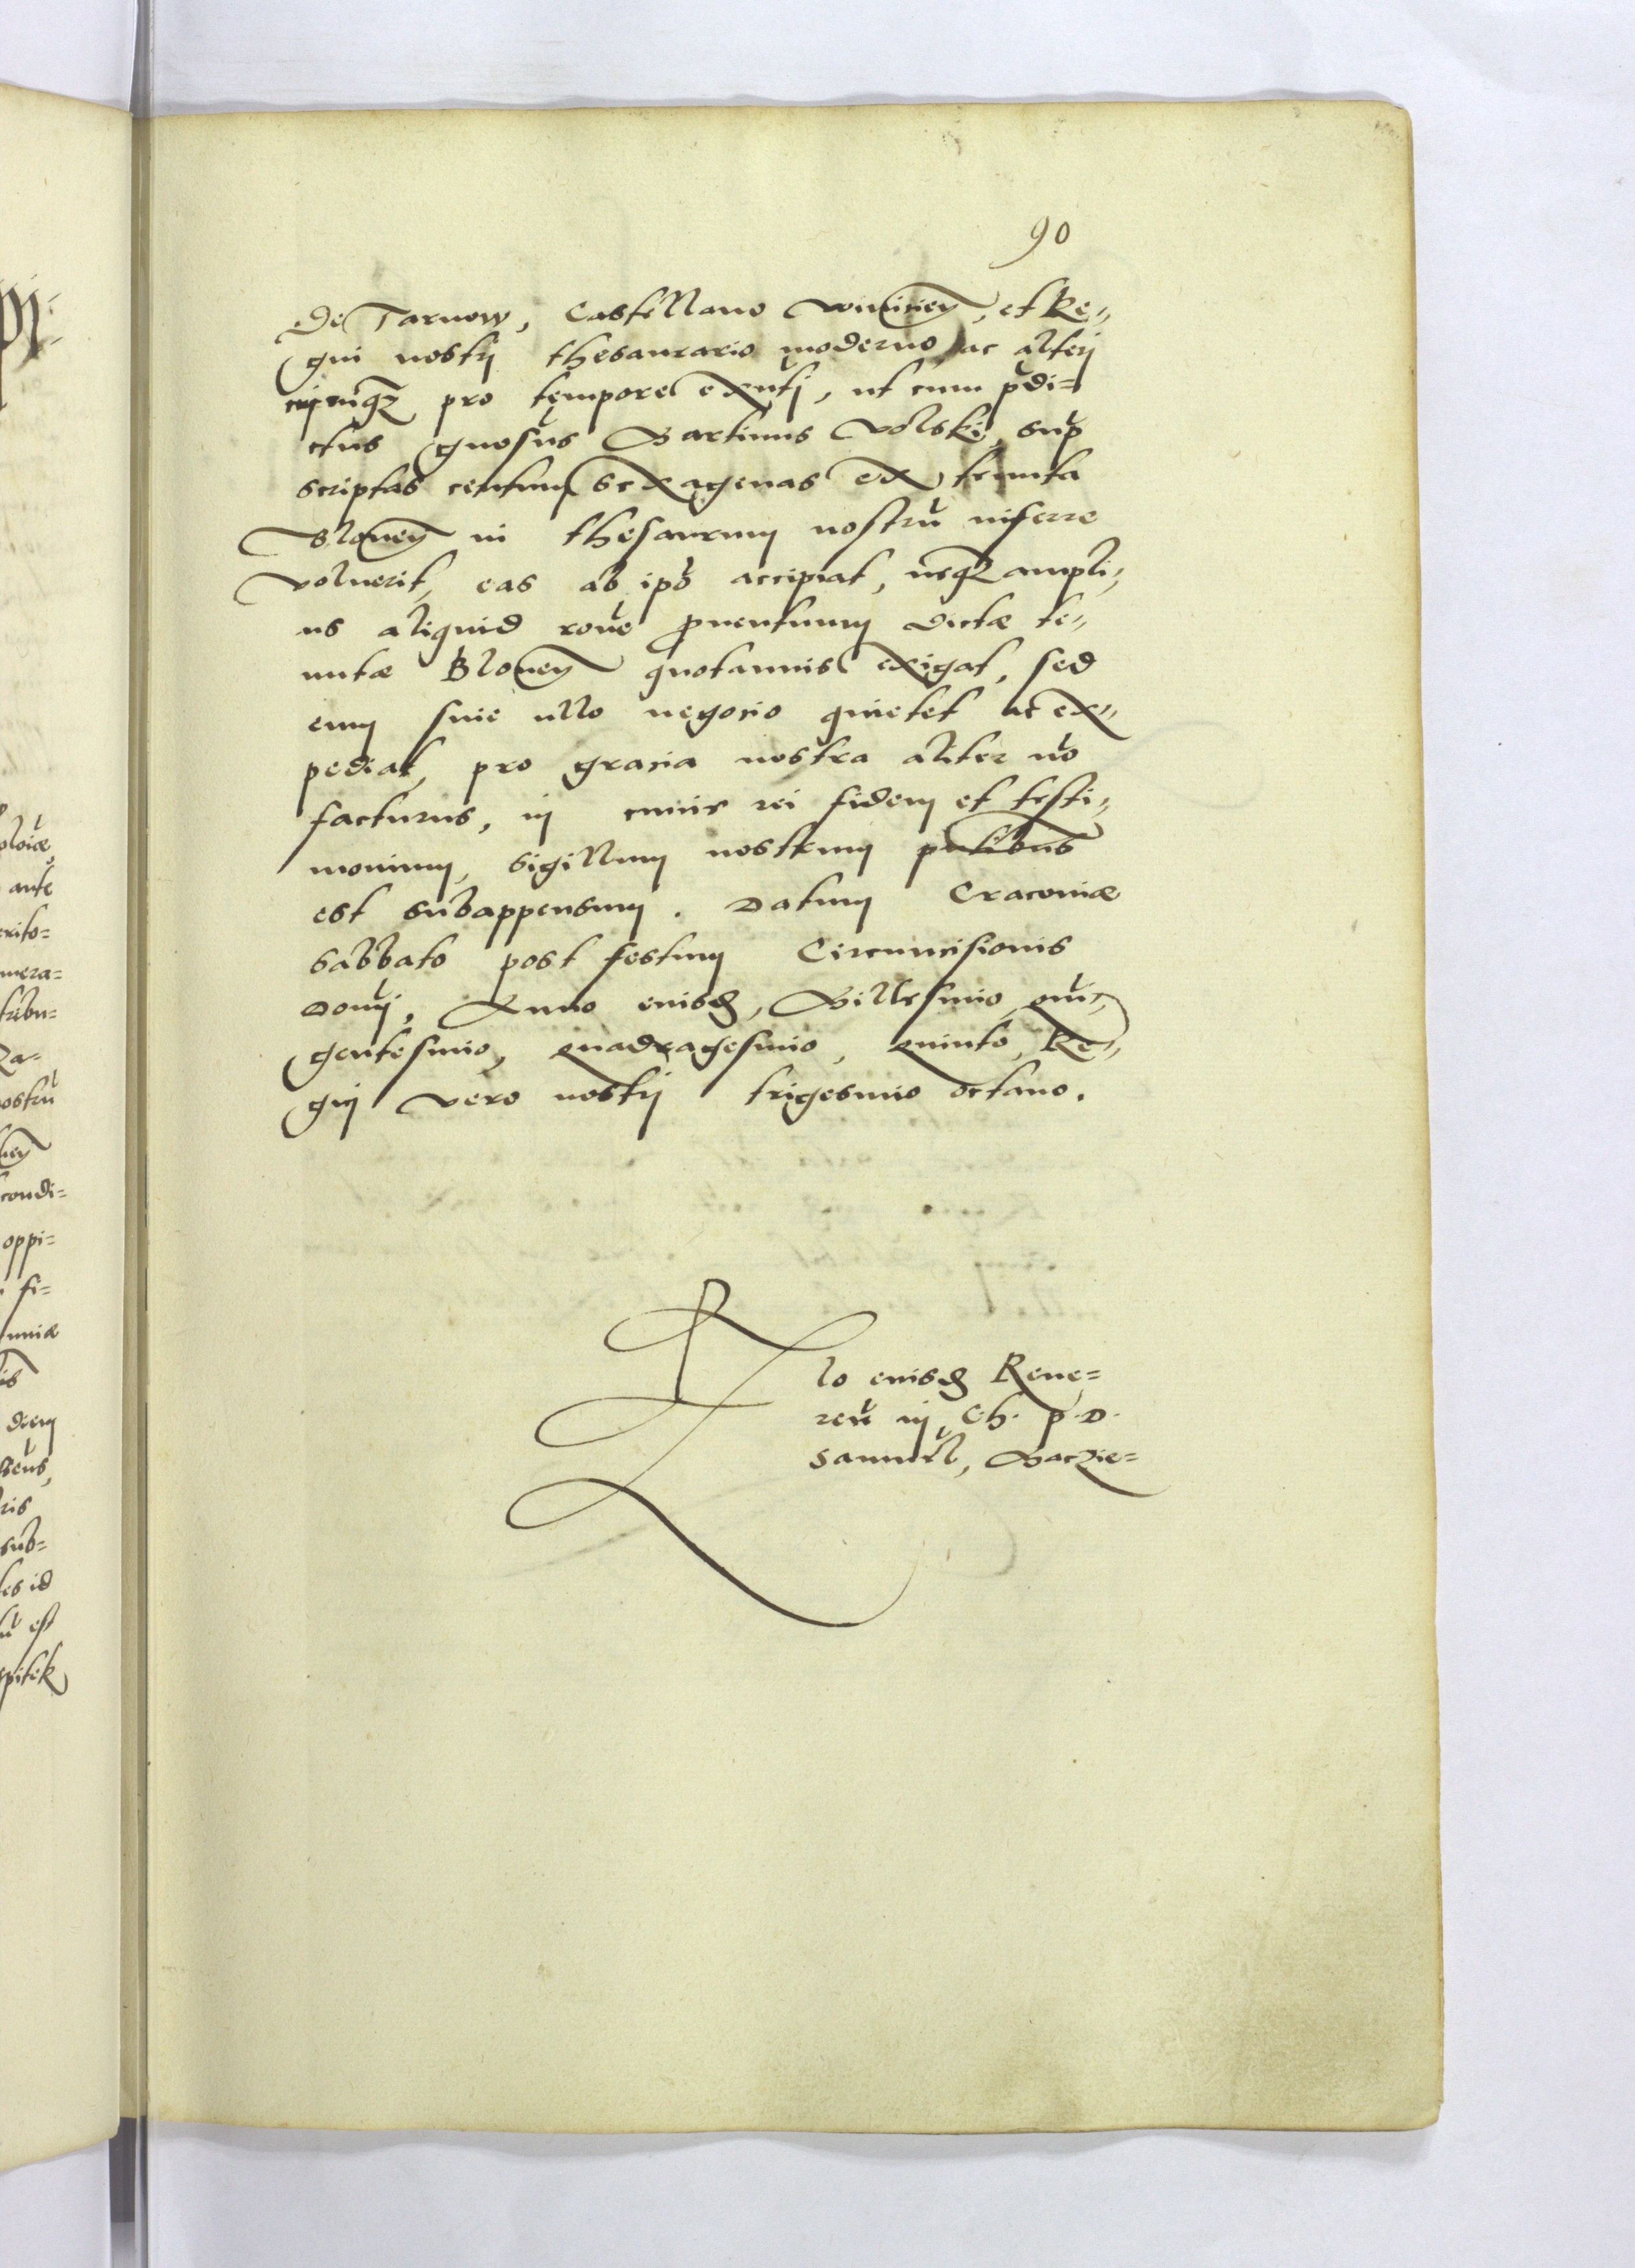 90
de Tarnow, Castellano Voiniceñ, et Re=
gni nostri thesaurario moderno, ac alteri
cuicunqꝫ pro tempore exñti, ut cum p̃di=
ctus gnosus Martinus Volski, sup
scriptas centum sexagenas ex tenuta
Bloneñ in thesaurum nostrũ inferre
voluerit, eas ab ipso accipiat, neqꝫ ampli=
us aliquid rõne proventuum dictæ te=
nutæ Bloneñ quotannis exigat, sed
eum sine ullo negocio quietet ac ex=
pediat, pro gracia nostra aliter nõ
facturus, in cuius rei fidem et testi=
monium, sigillum nostrum pñtibus
est subappensum. Datum Cracoviæ
sabbato post festum Circumcisionis
Domĩ, Anno eiusd, Millesimo, quin=
gentesimo, quadragesimo, quinto, Re=
gni vero nostri trigesimo octavo.
Rlo eiusd Reve=
ren̄ in C.h. p. D.
Samuel, Maczie=
ante
condi=
oppi=
fi=
diem
sub=
est